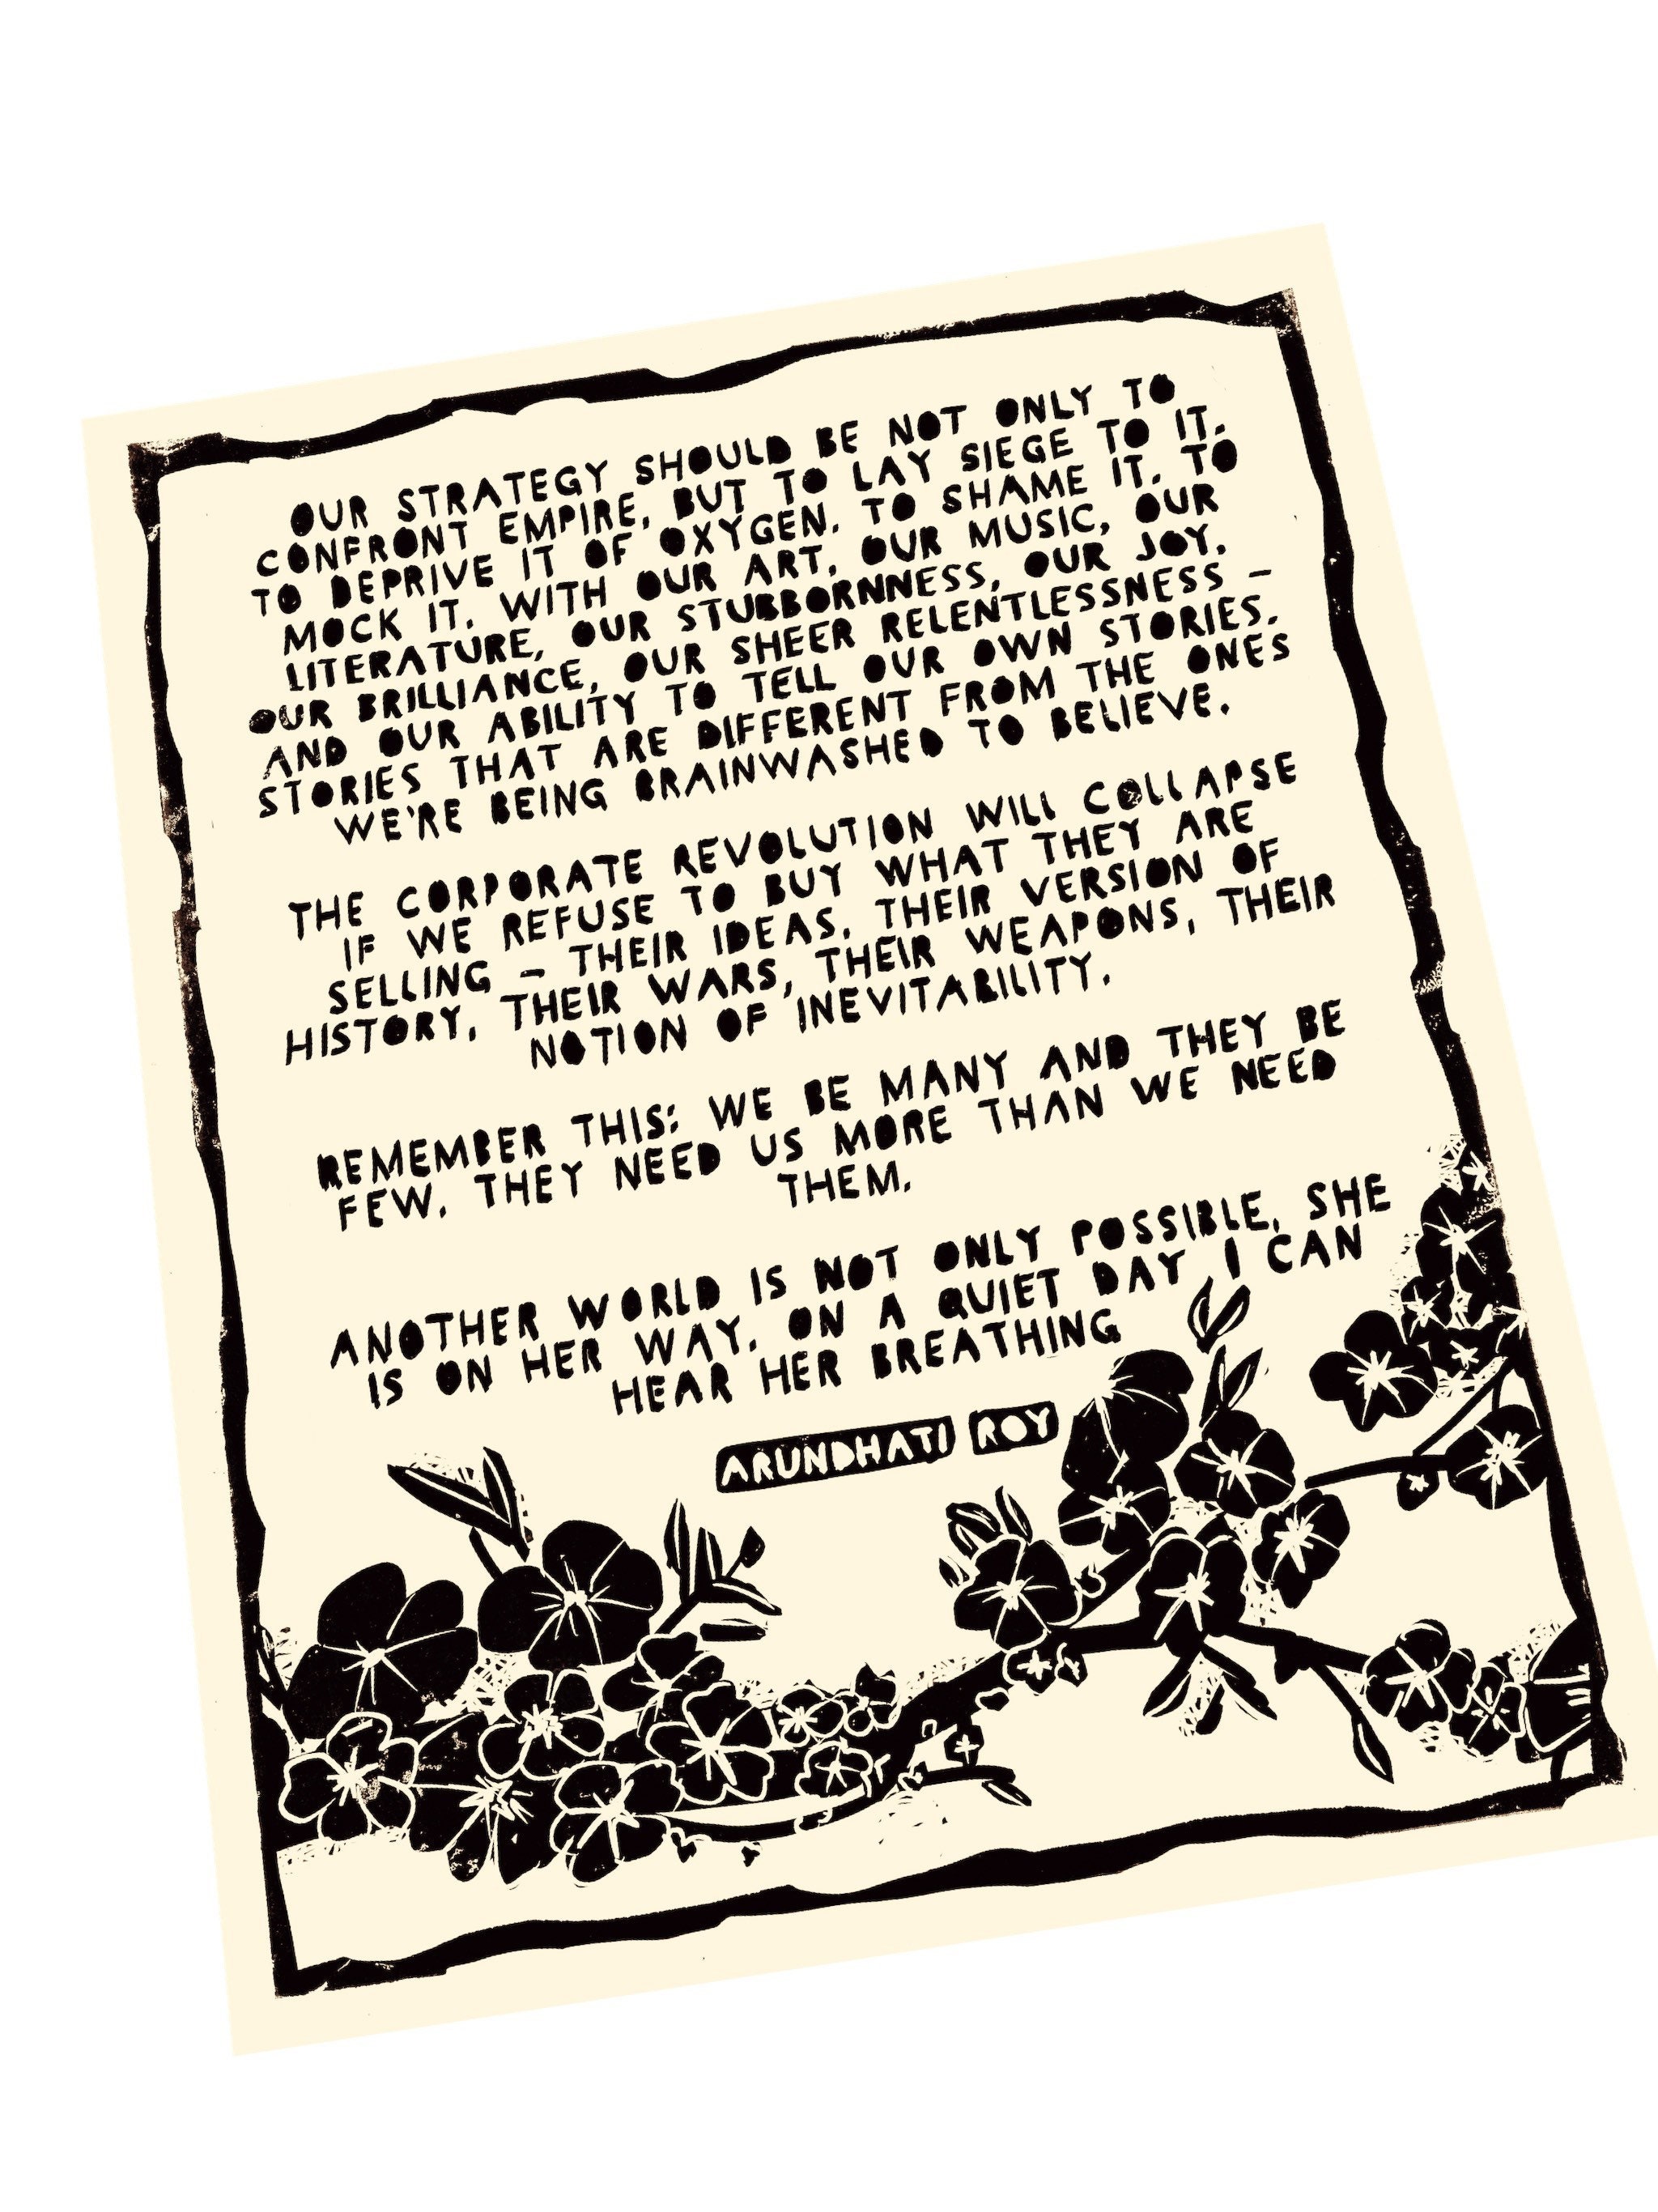 OUR STRATEGY SHOULD BE NOT ONLY TO
CONFRONT EMPIRE, BUT TO LAY SIEGE TO IT.
TO DEPRIVE IT OF OXYGEN. TO SHAME IT. TO
MOCK IT. WITH OUR ART, OUR MUSIC, OUR
LITERATURE, OUR STUBBORNNESS, OUR JOY,
OUR BRILLIANCE, OUR SHEER RELENTLESSNESS –
AND OUR ABILITY TO TELL OUR OWN STORIES.
STORIES THAT ARE DIFFERENT FROM THE ONES
WE'RE BEING BRAINWASHED TO BELIEVE.
THE CORPORATE REVOLUTION WILL COLLAPSE
IF WE REFUSE TO BUY WHAT THEY ARE
SELLING – THEIR IDEAS, THEIR VERSION OF
HISTORY, THEIR WARS, THEIR WEAPONS, THEIR
NOTION OF INEVITABILITY.
REMEMBER THIS: WE BE MANY AND THEY BE
FEW. THEY NEED US MORE THAN WE NEED
THEM.
ANOTHER WORLD IS NOT ONLY POSSIBLE, SHE
IS ON HER WAY. ON A QUIET DAY I CAN
HEAR HER BREATHING
ARUNDHATI ROY